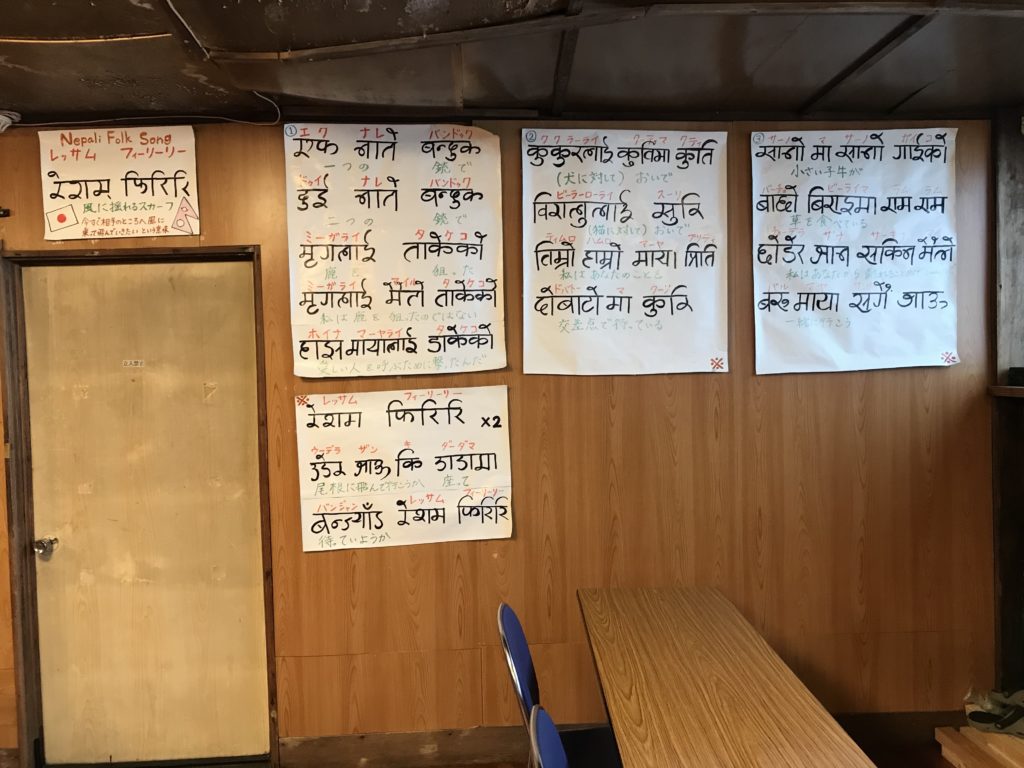 Nepali Folk Song
レッサム フィーリーリー
रेशाम फिरिरि
風に揺れるスカーフ
今すぐ相手のところへ風に
乗って飛んでいきたいという意味
立入禁止
① エク ナレ バンドゥク
एक नाले बन्दुक
一つの 銃で
ドゥイ ナレ バンドゥク
दुई नाले बन्दुक
二つの 銃で
ミーガライ タケコ
मृगलाई ताकेको
鹿を 狙った
ミーガライ マイル タケコ
मृगलाई मैले ताकेको
私は鹿を狙ったのではない
ホイナ マーヤライ ダケコ
होइन मायालाई डाकेको
美しい人を呼ぶために撃ったんだ
※ レッサム フィーリーリー
रेशाम फिरिरि x2
ウーデラ ザン キ ダーダマ
उडेर जाऊ कि डाडामा
尾根に飛んで行こうか 座って
バンジャン レッサム フィーリーリー
बन्ज्याँङ रेशाम फिरिरि
待っていようか
② ククラーライ クティマ クティ
कुकुरलाई कुतिमा कुति
(犬に対して) おいで
ビラーローライ スーリ
विरालुलाई सुरि
(猫に対して) おいで
ティムロ ハムロ マーヤ プリティ
तिम्रो हाम्रो माया प्रिति
私とあなたのことも
ドバトー マ クーリ
दोबाटो मा कुरि
交差点で待っている
※
③ サーノ マ サーノ ガイコ
सानो मा सानो गाईको
小さい子牛が
बाछो भिराइमा राम राम
草を食べている
छोडेर जान सकिन मैले
बरु माया सगैँ जाऊ
一緒に行こう
※